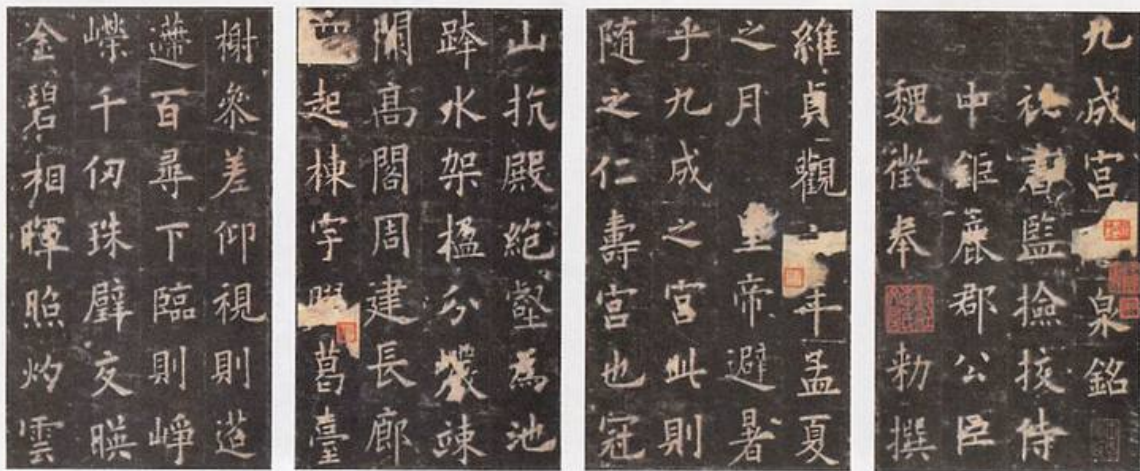 九成宫泉銘
秘書監撿挍侍
中鉅鹿郡公臣
魏徵奉勑撰
維貞觀年孟夏
之月皇帝避暑
乎九成之宫此則
隨之仁壽宫也冠
山抗殿絶壑為池
跨水架楹分巖竦
闕高閣周建長廊
四起棟宇膠葛臺
榭參差仰視則迢
遰百尋下臨則崢
嶸千仞珠璧交暎
金碧相暉照灼雲